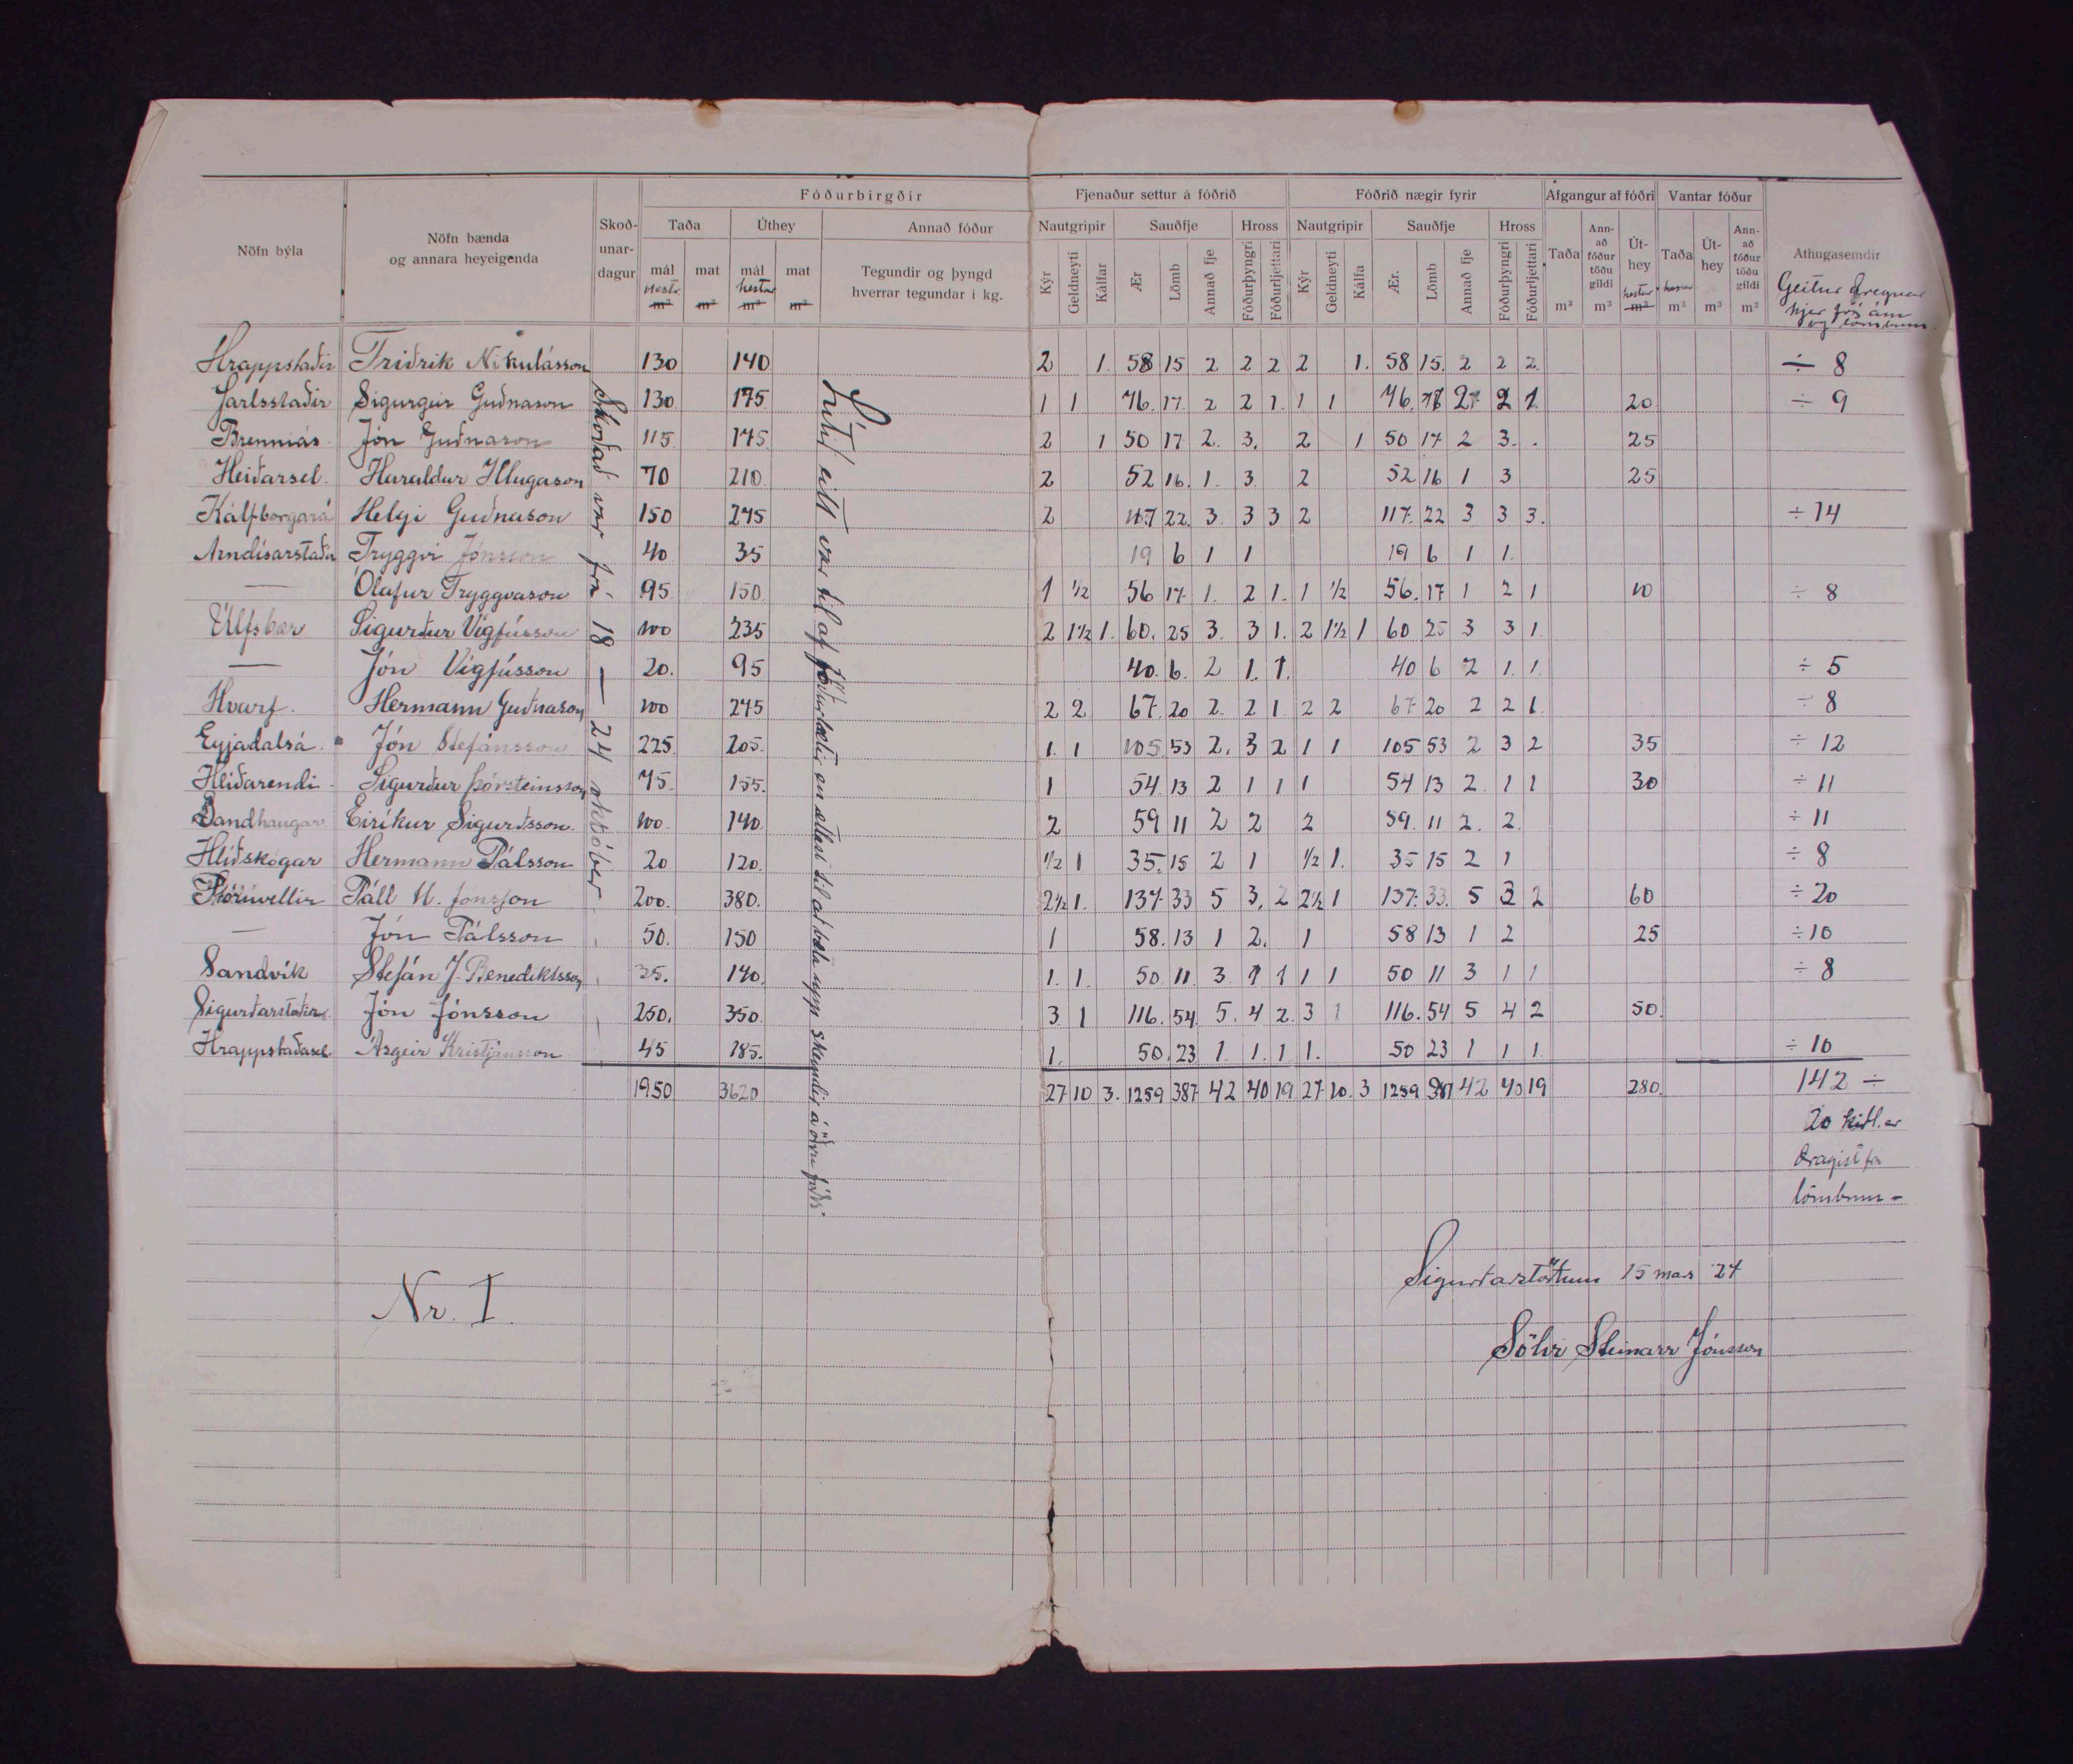 Fóðurbirgðir Fjenaður settur á fóðrið Fóðrið nægir fyrir Afgangur af fóðri Vantar fóður
Nöfn býla Nöfn bænda og annara heyeigenda Skoð-unar-dagur Taða Úthey Annað fóður Nautgripir Sauðfje Hross Nautgripir Sauðfje Hross Taða Ann-að fóður töðu gildi Út-hey Taða Út-hey Ann-að fóður töðu gildi Athugasemdir
mál mat mál mat Tegundir og þyngd hverrar tegundar í kg. Kýr Geldneyti Kálfar Ær Lömb Annað fje Fóðurþyngri Fóðurljettari Kýr Geldneyti Kálfa Ær. Lömb Annað fje Fóðurþyngri Fóðurljettari
hestar m³ m³ hestar m³ m³ m³ m³ hestar m³ hestar m³ m³ m³
Geitur dregnar hjer frá ám og lömbum.
Hrappstaðir Friðrik Nikulásson 130 140 2 1. 58 15 2 2 2 2 1. 58 15. 2 2 2. ÷ 8
Jarlsstaðir Sigurgeir Guðnason 130 175 1 1 76. 17. 2 2 1. 1 1 76. 17 2 2 1 20 ÷ 9
Brenniás Jón Guðnason 115. 175 2 1 50 17 2. 3. 2 1 50 17 2 3. . 25
Heiðarsel. Haraldur Illugason 70 210 2 52 16. 1. 3. 2 52 16 1 3 25
Kálfborgará Helgi Guðnason 150 275 2 117 22. 3. 3 3 2 117. 22 3 3 3. ÷ 14
Arndísarstaðir Tryggvi Jónsson 40 35 19 6 1 1 19 6 1 1.
— Ólafur Tryggvason 95. 150. 1 1/2 56 17. 1. 2 1. 1 1/2 56. 17 1 2 1 10 ÷ 8
Úlfsbær Sigurður Vigfússon 100 235 2 1 1/2 1. 60. 25 3. 3 1. 2 1 1/2 1 60 25 3 3 1.
— Jón Vigfússon 20. 95 40. 6. 2 1. 1. 40 6 2 1. 1. ÷ 5
Hvarf. Hermann Guðnason 100 275 2 2. 67. 20 2. 2 1 2 2 67 20 2 2 1. ÷ 8
Eyjadalsá. Jón Stefánsson 225. 205. 1. 1 105 53 2. 3 2 1 1 105 53 2 3 2 35 ÷ 12
Hlíðarendi Sigurður Þórsteinsson 75. 155. 1 54 13 2 1 1 1 54 13 2. 1 1 30 ÷ 11
Sandhaugar Eiríkur Sigurðsson. 100. 140. 2 59 11 2 2 2 59. 11 2. 2. ÷ 11
Hlíðskógar Hermann Pálsson 20 120. 1/2 1 35. 15 2 1 1/2 1. 35 15 2 1 ÷ 8
Stóruvellir Páll H. Jónsson 200. 380. 2 1/2 1. 137. 33 5 3. 2 2 1/2 1 137. 33. 5 3 2 60 ÷ 20
— Jón Pálsson 50. 150 1 58. 13 1 2. 1 58 13 1 2 25 ÷ 10
Sandvík Stefán J. Benediktsson 35. 140. 1. 1. 50 11. 3. 1 1 1 1 50 11 3 1 1 ÷ 8
Sigurðarstaðir Jón Jónsson 250. 350. 3 1 116. 54. 5. 4 2. 3 1 116. 54 5 4 2 50.
Hrappstaðasel. Ásgeir Kristjánsson 45 185. 1. 50. 23 1. 1. 1 1. 50 23 1 1 1. ÷ 10
1950 3620 27 10 3. 1259 387 42 40 19 27 10. 3 1259 387 42 40 19 280. 142 ÷
Skoðað var frá 18 — 24 október
Lítið eitt var til af fóðurbætir, en ætlast til að bæta upp skemdir á öðru fóðri.
20 kiðl. er
dragist frá
lömbum -
Sigurðarstöðum 15 mars '24
Nr. I.
Sölvi Steinarr Jónsson